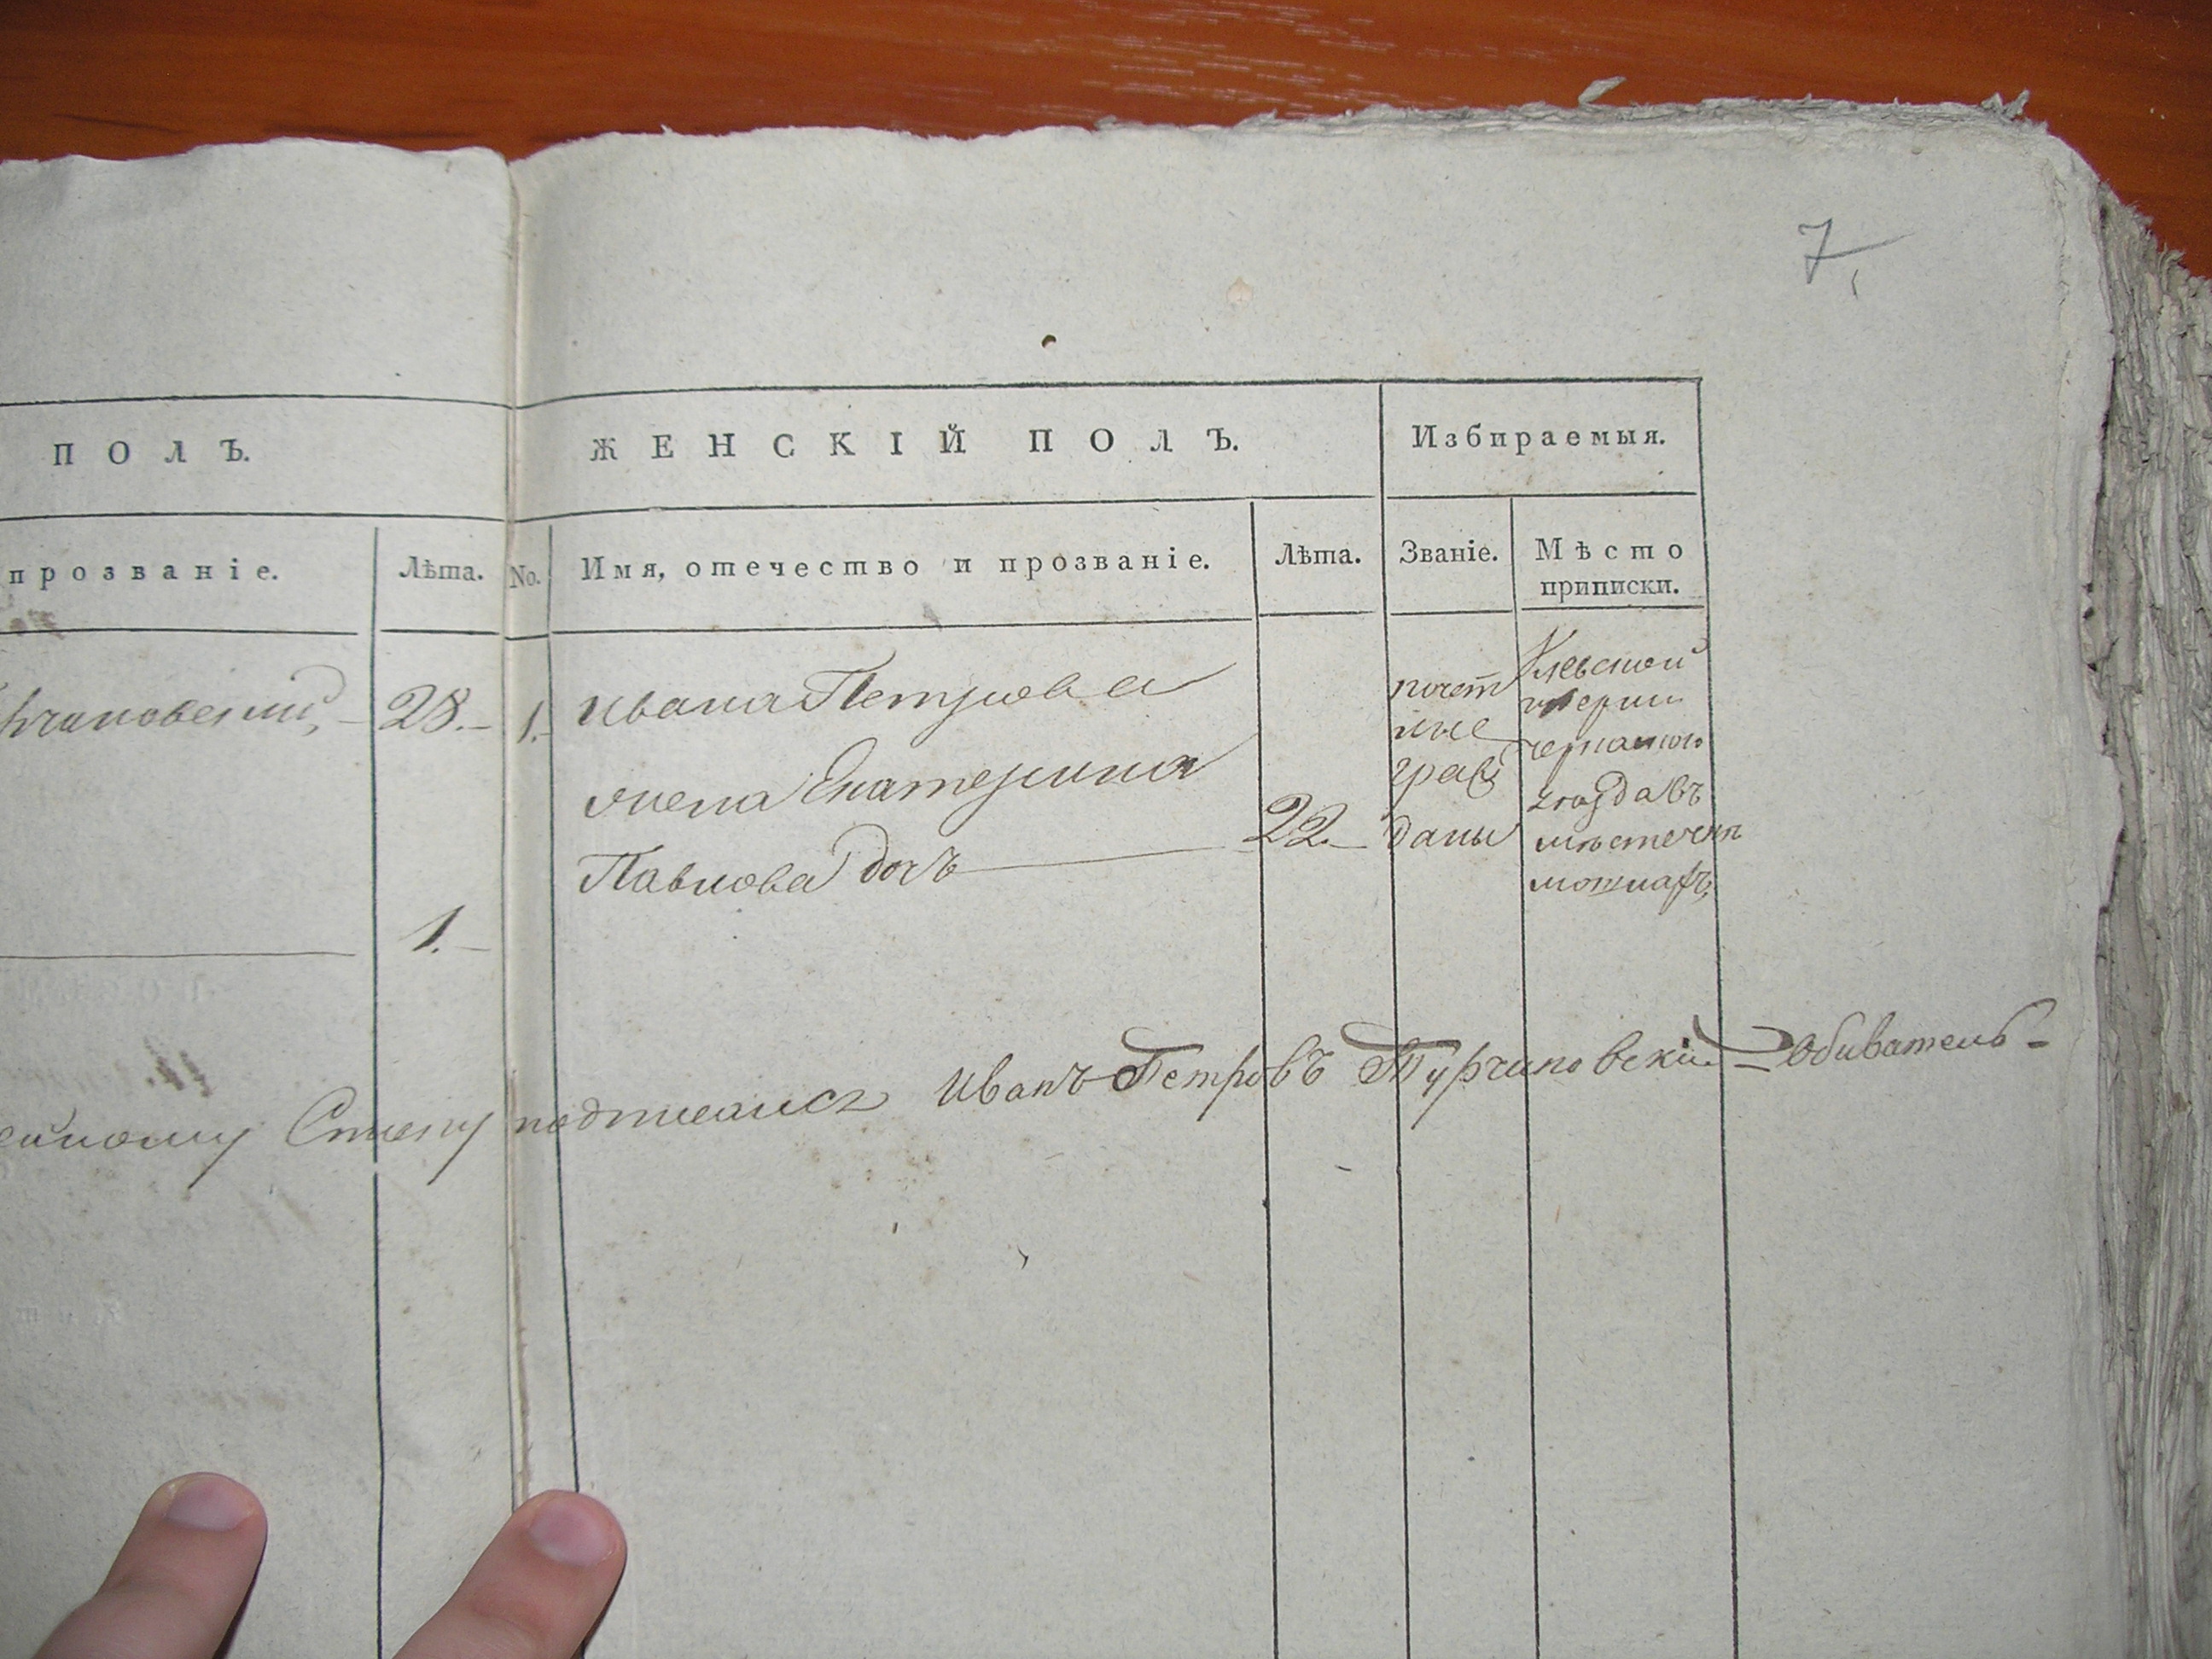 7
ПОЛЪ.
ЖЕНСКІЙ ПОЛЪ.
Избираемыя.
прозваніе.
Лѣта.
No.
Имя, отечество и прозваніе.
Лѣта.
Званіе.
Мѣсто
приписки.
рчиновскій, 28. 1. Ивана Петрова
жена Екатерина
Павлова дочь 22.
почет
ные
граж
даны
Кіевской
губернии
черкаского
уезда въ
местечки
мошнахъ,
1.
Сему подписался Иванъ Петровъ Турчиновский обиватель